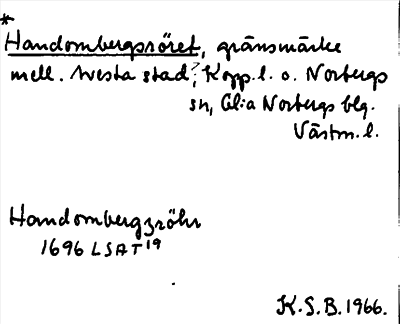 *
Handombergsröret, gränsmärke
mell. Avesta stad, Kopp.l. o. Norbergs
sn, Gl:a Norbergs blg.
Västm.l.
Handombergzröhr
1696 LSAT 19
K.S.B. 1966.